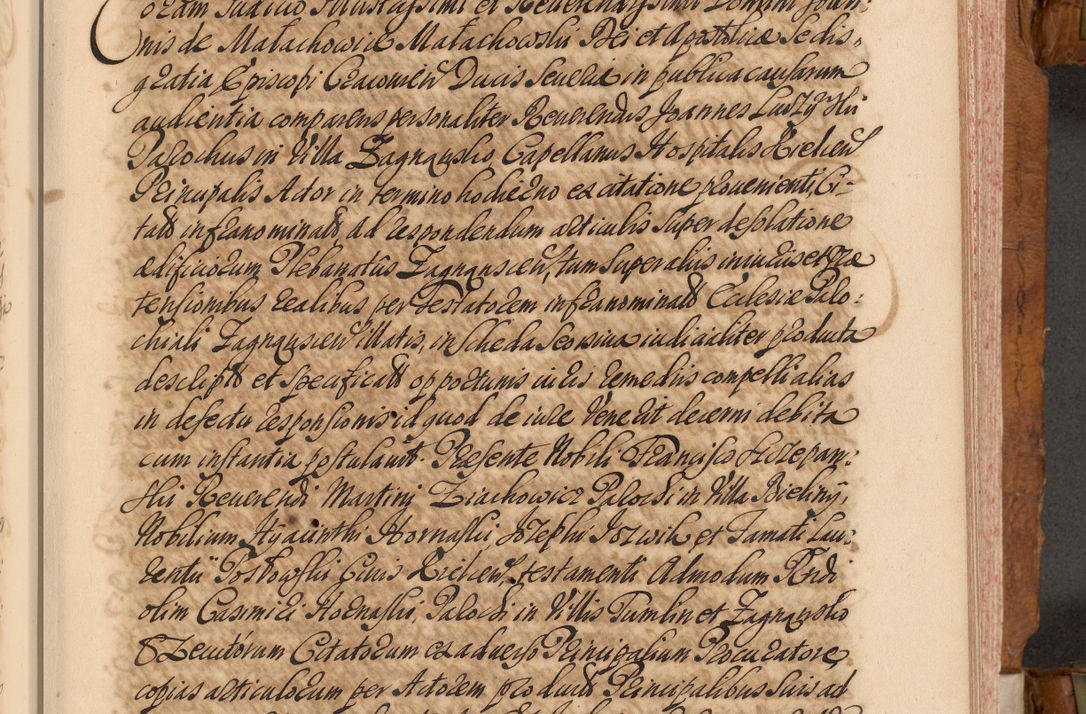 Coram Iudicio Illustrissimi et Reverendissimi Domini Joan-
nis de Małachowice Małachowski Dei et Apostolicæ Sedis
gratia Episcopi Cracovien Ducis Severiæ in publica causarum
audientia comparens personaliter Reverendus Joannes
Parochus in Villa Zagnansko, Capellanus Hospitalis Kielcen
Principalis Actor in termino hodierno ex citatione provenienti, Ci-
tatos infranominatos ad respondendum articulis super desolatione
ædificiorum Plebanatûs Zagnanscen, tum super aliis iniuriis et præ
tensionibus realibus per testatorem infranominatum Ecclesiæ Paro-
chiali Zagnanscen illatis, in scheda seorsiva iudicialiter producta
descriptis et specificatis opportunis iuris remediis compelli alias
in defectu responsionis id quod de iure venerit decerni debita
cum instantia postulavit. Præsente Nobili Francisco Szczepan-
ski Reverendi Martini Ziachowicz Parochi in Villa Bieliny,
Nobilium Hyacinthi Hornaski Josephi Jozwik et Famati Lau-
rentii Poskowski Civis Kielcen, testamenti Admodum Rndi
olim Casimiri Hornaski, Parochi in Villis Tumlin et Zagnansko
Exzecutorum Citatorum ex adverso Principalium Procuratore
copias articulorum per Actorem productorum Principalibus suis ad